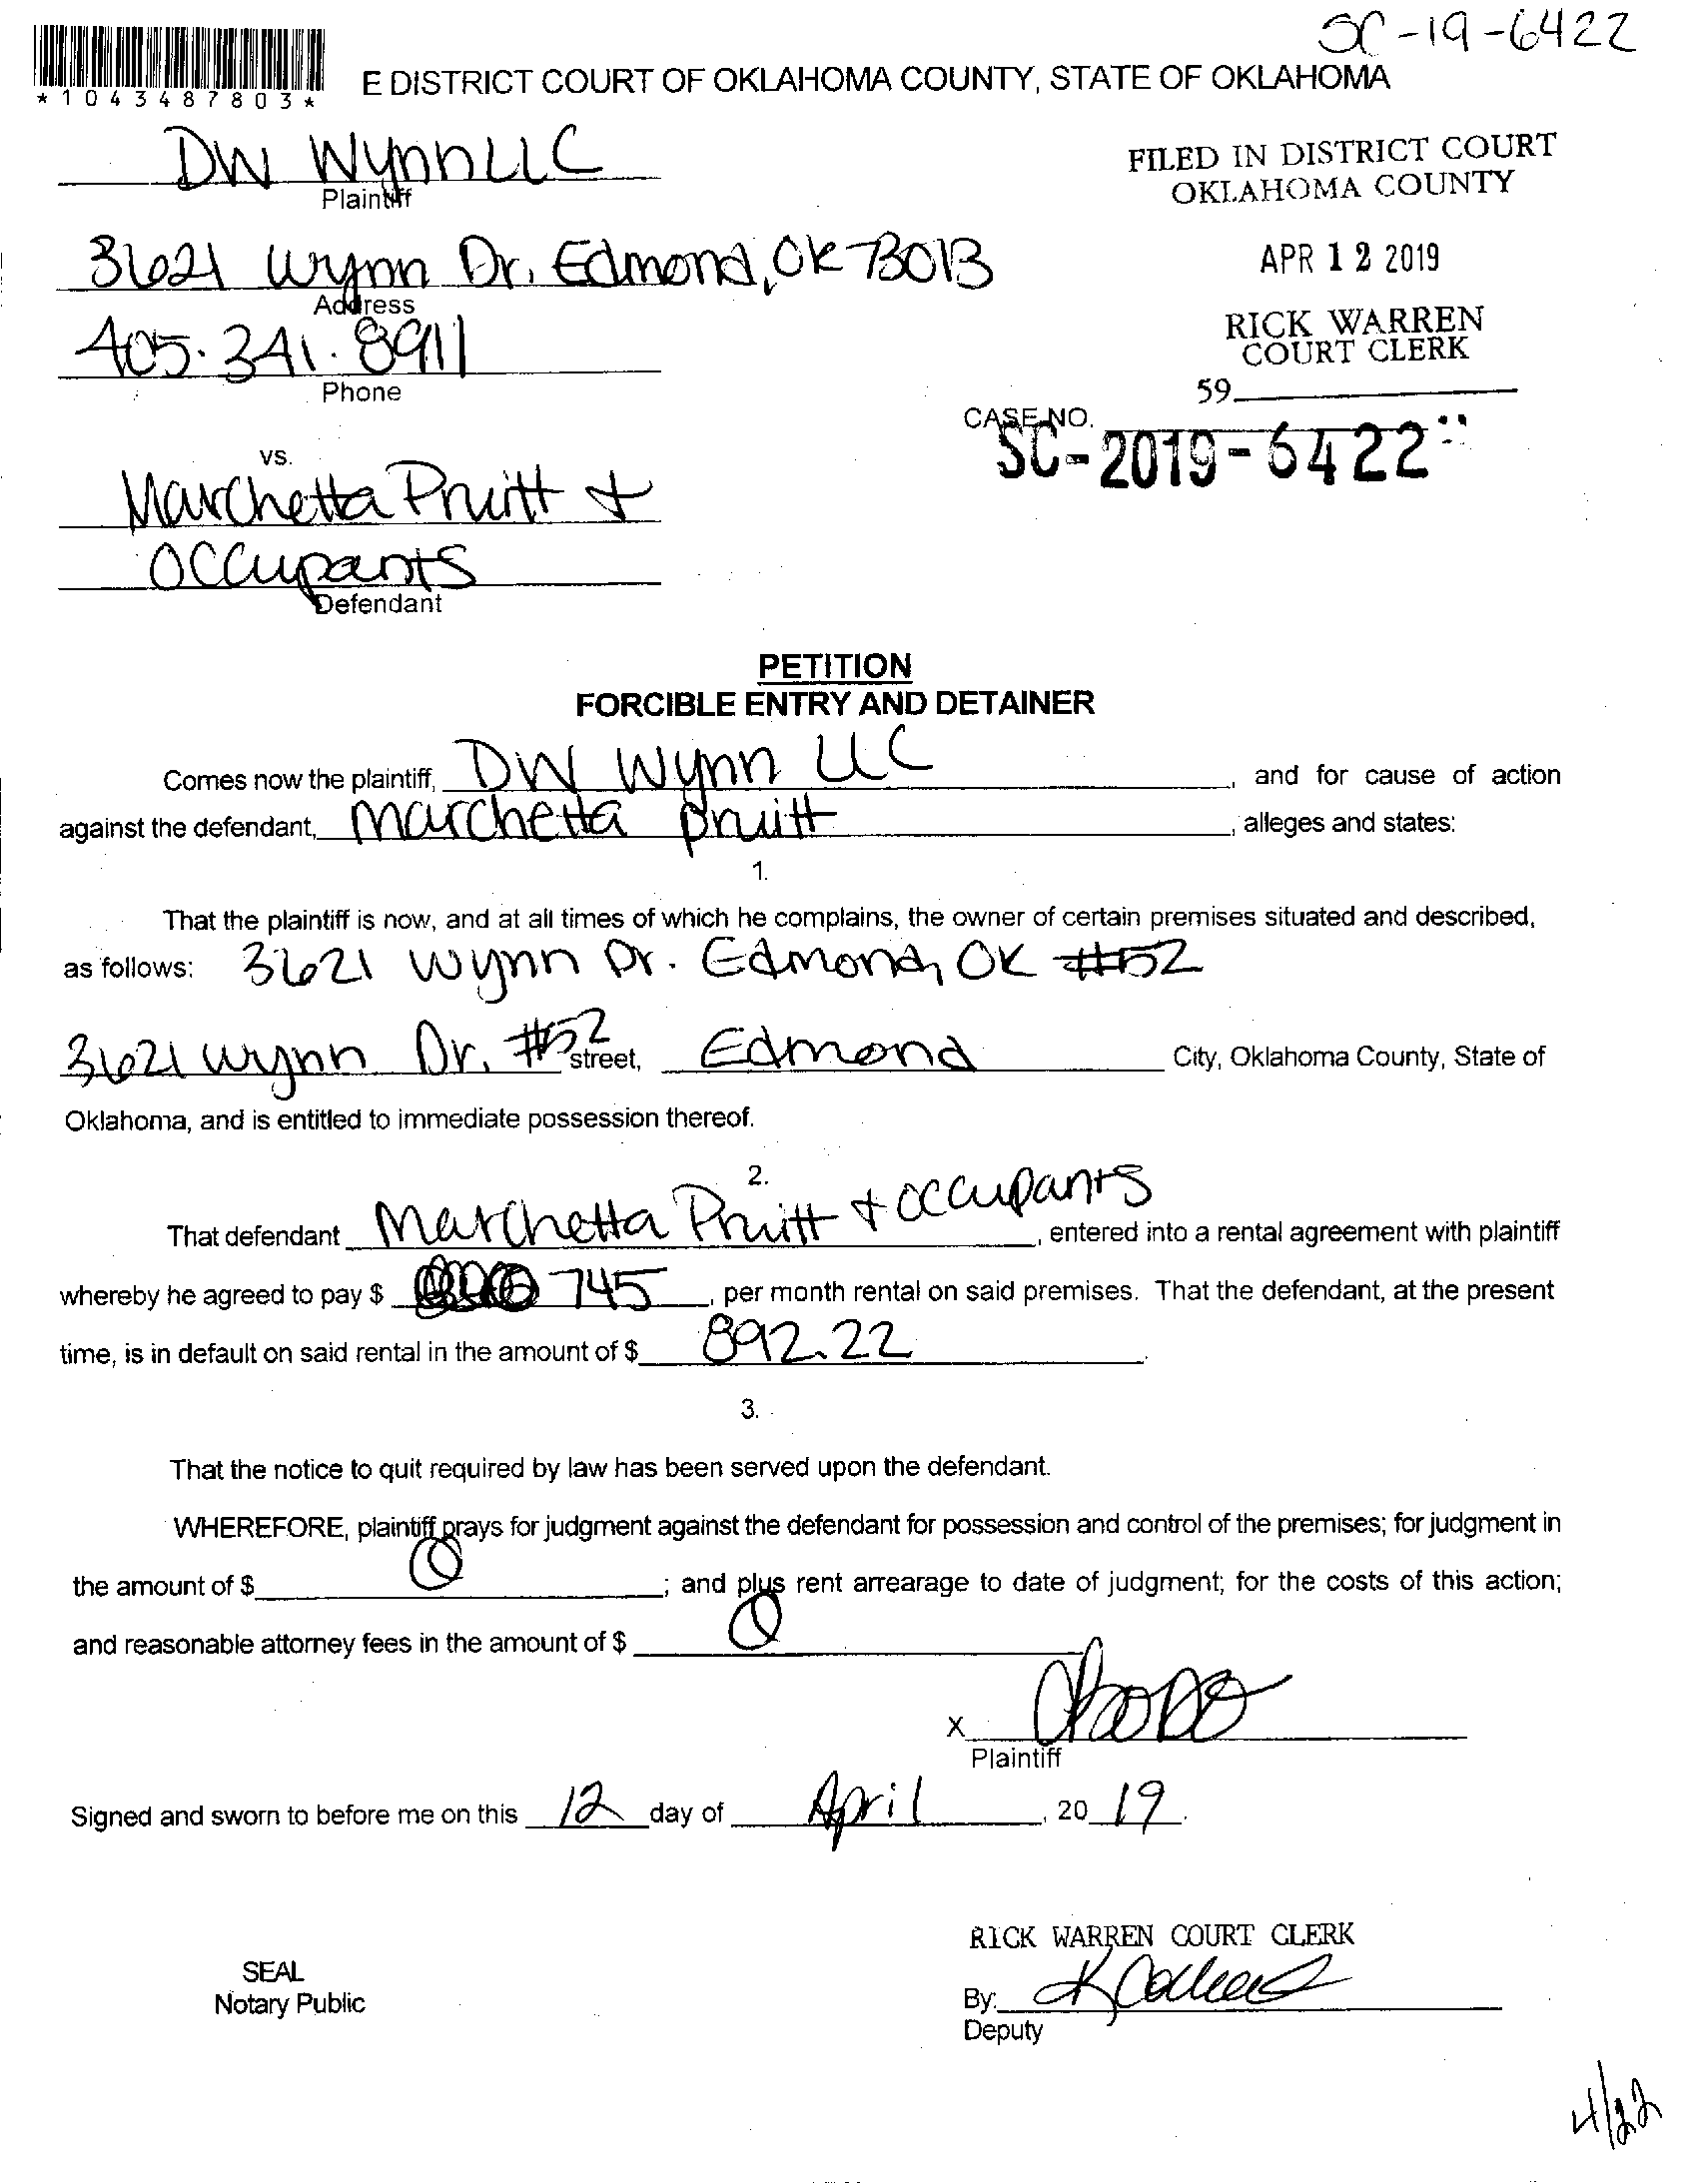 SC-19-6422
*1043487803*
E DISTRICT COURT OF OKLAHOMA COUNTY, STATE OF OKLAHOMA
DW Wynn LLC
Plaintiff
FILED IN DISTRICT COURT
OKLAHOMA COUNTY
3621 Wynn Dr. Edmond, OK 73013
Address
APR 12 2019
405.341.8911
Phone
RICK WARREN
COURT CLERK
59
CASE NO.
SC-2019-6422
vs.
Marchetta Pruitt +
Occupants
Defendant
PETITION
FORCIBLE ENTRY AND DETAINER
Comes now the plaintiff, DW Wynn LLC, and for cause of action
against the defendant, Marchetta Pruitt, alleges and states:
1.
That the plaintiff is now, and at all times of which he complains, the owner of certain premises situated and described,
as follows: 3621 Wynn Dr. Edmond, OK #52
3621 Wynn Dr. #52 street, Edmond City, Oklahoma County, State of
Oklahoma, and is entitled to immediate possession thereof.
2.
That defendant Marchetta Pruitt + occupants, entered into a rental agreement with plaintiff
whereby he agreed to pay $ 745, per month rental on said premises. That the defendant, at the present
time, is in default on said rental in the amount of $ 892.22.
3.
That the notice to quit required by law has been served upon the defendant.
WHEREFORE, plaintiff prays for judgment against the defendant for possession and control of the premises; for judgment in
the amount of $ 0; and plus rent arrearage to date of judgment; for the costs of this action;
and reasonable attorney fees in the amount of $ 0
X
Plaintiff
Signed and sworn to before me on this 12 day of April, 20 19.
RICK WARREN COURT CLERK
SEAL
Notary Public
By:
Deputy
4/22